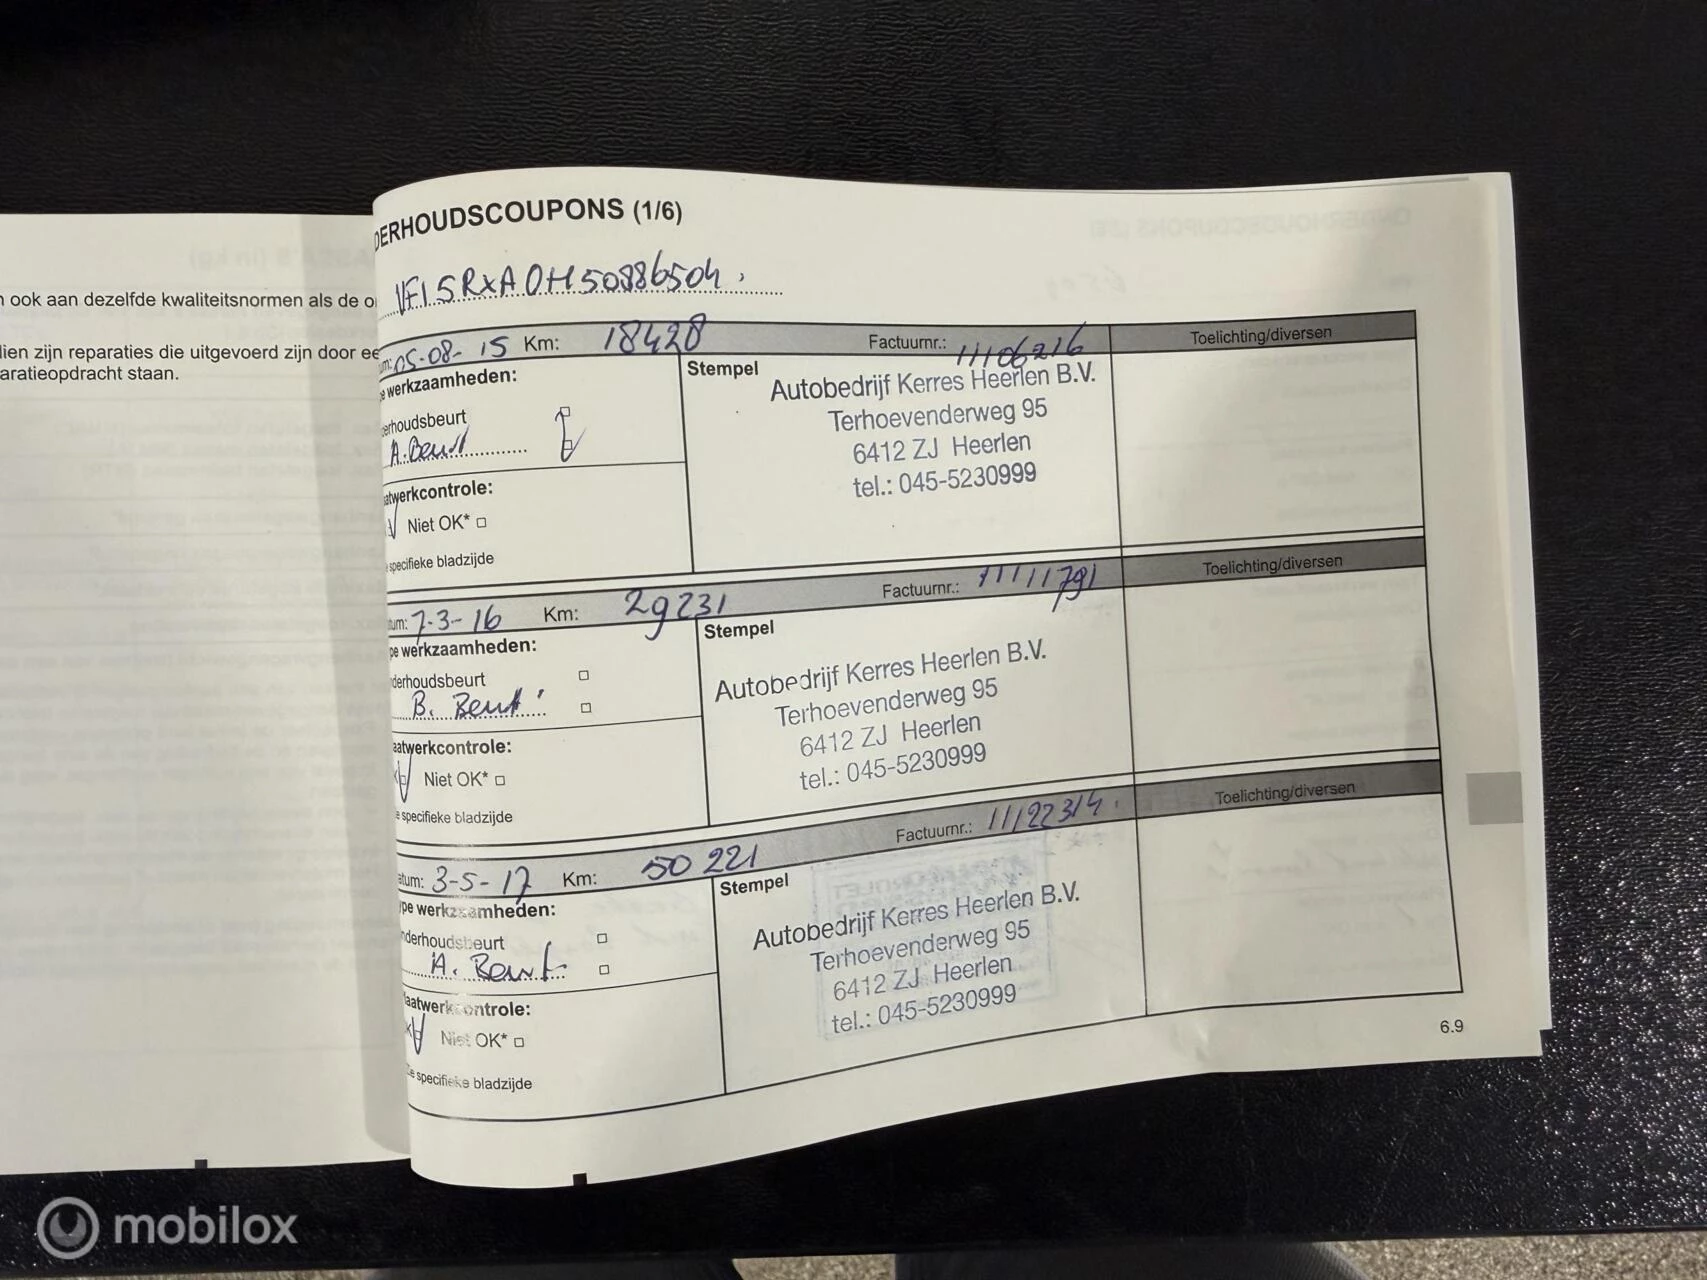 ook aan dezelfde kwaliteitsnormen als de
zijn reparaties die uitgevoerd zijn door
staan.
DERHOUDSCOUPONS (1/6)
VF15RXA0H50886504
05-08-15 Km: 18428 Factuurnr.: 11106216 Toelichting/diversen
werkzaamheden:
Stempel
Autobedrijf Kerres Heerlen B.V.
Terhoevenderweg 95
6412 ZJ Heerlen
tel.: 045-5230999
derhoudsbeurt
A. Beurt
aatwerkcontrole:
Niet OK*
specifieke bladzijde
7-3-16 Km: 29231 Factuurnr.: 11111791 Toelichting/diversen
pe werkzaamheden:
Stempel
Autobedrijf Kerres Heerlen B.V.
Terhoevenderweg 95
6412 ZJ Heerlen
tel.: 045-5230999
derhoudsbeurt
B. Beurt
aatwerkcontrole:
Niet OK*
specifieke bladzijde
atum: 3-5-17 Km: 50 221 Factuurnr.: 11122314 Toelichting/diversen
ype werkzaamheden:
Stempel
Autobedrijf Kerres Heerlen B.V.
Terhoevenderweg 95
6412 ZJ Heerlen
tel.: 045-5230999
nderhoudsbeurt
A. Beurt
laatwerkcontrole:
Niet OK*
specifieke bladzijde
6.9
mobilox